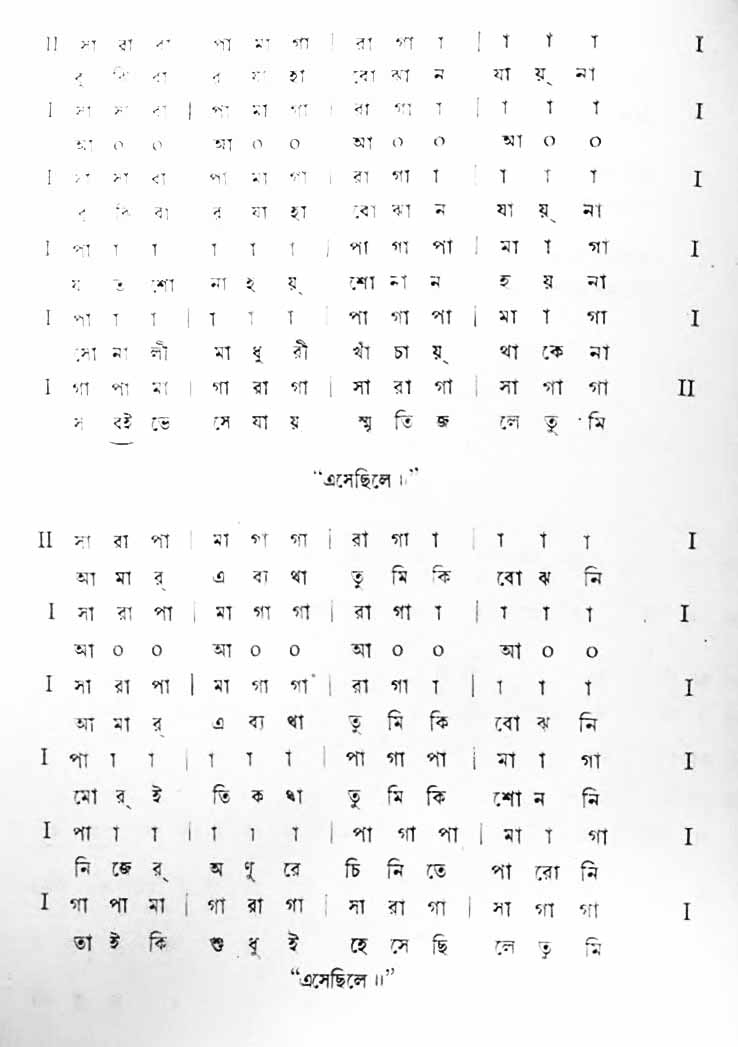 II সা রা রা পা মা গা | রা গা া | া া া I
বু কি বা র যাহা বোঝা ন যায়্ না
I সা সা রা | পা মা গা | রা গা া | া া া I
আ ০ ০ আ ০ ০ আ ০ ০ আ ০ ০
I সা সা রা পা মা গা | রা গা া | া া া I
বু কি বা র যা হা বো ঝা ন যা য়্ না
I পা া া া া া | পা গা পা | মা া গা I
য ত শো না হ য়্ শো না ন হ য় না
I পা া া | া া া | পা গা পা | মা া গা I
সো না লী মা ধু রী খাঁ চা য়্ থা কে না
I গা পা মা | গা রা গা | সা রা গা | সা গা গা II
স বই ভে সে যা য় স্মৃ তি জ লে তু মি
“এসেছিলে ।”
II সা রা পা | মা গা গা | রা গা া | া া া I
আ মা র্ এ ব্য থা তু মি কি বো ঝ নি
I সা রা পা | মা গা গা | রা গা া | া া া I
আ ০ ০ আ ০ ০ আ ০ ০ আ ০ ০
I সা রা পা | মা গা গা | রা গা া | া া া I
আ মা র্ এ ব্য থা তু মি কি বো ঝ নি
I পা া া | া া া | পা গা পা | মা া গা I
মো র্ ই তি ক থা তু মি কি শো ন নি
I পা া া | া া া | পা গা পা | মা া গা I
নি জে র্ অ ণু রে চি নি তে পা রো নি
I গা পা মা | গা রা গা | সা রা গা | সা গা গা I
তা ই কি শু ধু ই হে সে ছি লে তু মি
“এসেছিলে ॥”